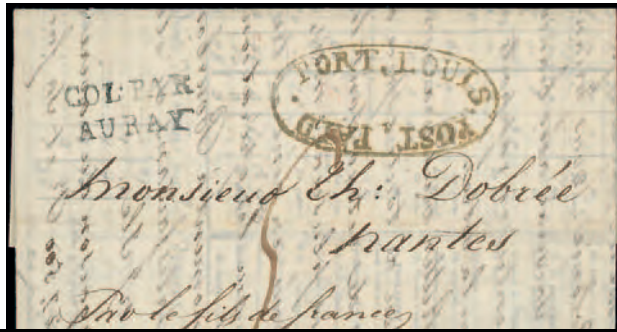 COL·PAR
AURAY
PORT, LOUIS
POST, PAID
5
Monsieur Th: Dobrée
Nantes
Par le fils de france